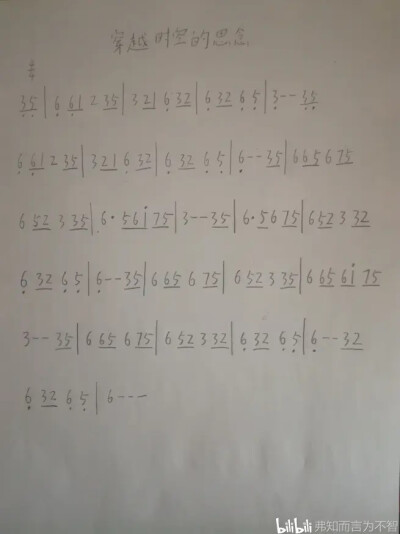 穿越时空的思念
4/4
35|6 61 2 35|321 6 32|6 32 6 5|3--35
6 61 2 35|321 6 32|6 32 6 5|6--35|665675
6 52 3 35|6·56i75|3--35|6·5675|652332
6 32 6 5|6--35|665675|652335|6656i75
3--35|665675|652332|6 32 6 5|6--32
6 32 6 5|6---
bilibili 弗知而言为不智